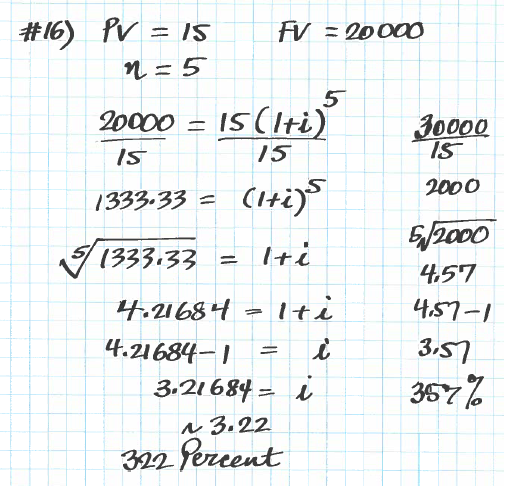 #16) PV = 15 FV = 20000
n = 5
20000/15 = 15(1+i)^5/15
1333.33 = (1+i)^5
⁵√1333.33 = 1+i
4.21684 = 1+i
4.21684-1 = i
3.21684 = i
~ 3.22
322 Percent
30000/15
2000
5√2000
4.57
4.57-1
3.57
357%